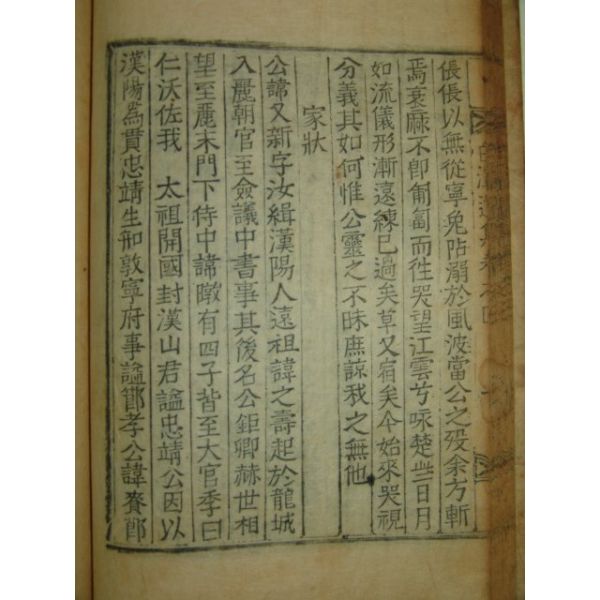 倀倀以無從寧免阽溺於風波當公之歿余方斬
焉衰麻不卽匍匐而徃哭望江雲兮咏楚些日月
如流儀形漸遠練已過矣草又宿矣今始來哭視
分義其如何惟公靈之不昧庶諒我之無他
家狀
公諱又新字汝緝漢陽人遠祖諱之壽起於龍城
入麗朝官至僉議中書事其後名公鉅卿赫世相
望至麗末門下侍中諱暾有四子皆至大官季曰
仁沃佐我 太祖開國封漢山君謚忠靖公因以
漢陽爲貫忠靖生知敦寧府事謚節孝公諱賚郎